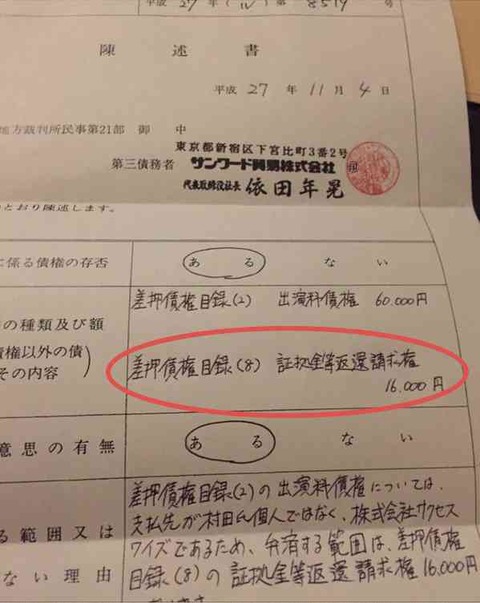 平成 27 年(ル)第 8519 号
陳述書
平成 27 年 11 月 4 日
地方裁判所民事第21部 御中
東京都新宿区下宮比町3番2号
第三債務者 サンワード貿易株式会社
代表取締役社長 依田年晃
とおり陳述します。
に係る債権の存否
ある
ない
差押債権目録(2) 出演料債権 60,000円
の種類及び額
債権以外の債
その内容
差押債権目録(8) 証拠金等返還請求権
16,000円
意思の有無
ある
ない
差押債権目録(2)の出演料債権については、
支払先が村田氏個人ではなく、株式会社サクセス
ワイズであるため、弁済する範囲は、差押債権
目録(8)の証拠金等返還請求権16,000円
る範囲又は
ない理由